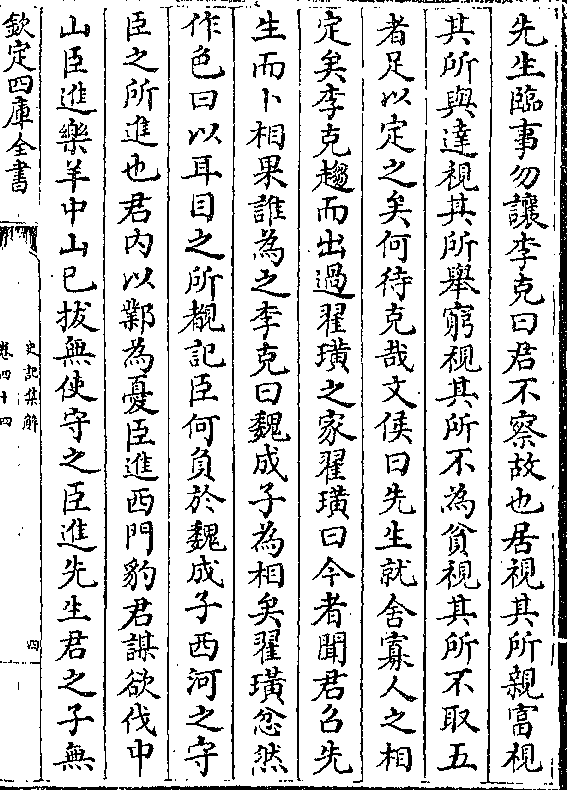 先生臨事勿讓李克曰君不察故也居視其所親富視
其所與達視其所舉窮視其所不為貧視其所不取五
者足以定之矣何待克哉文侯曰先生就舍寡人之相
定矣李克趨而出過翟璜之家翟璜曰今者聞君召先
生而卜相果誰為之李克曰魏成子為相矣翟璜忿然
作色曰以耳目之所覩記臣何負於魏成子西河之守
臣之所進也君內以鄴為憂臣進西門豹君謀欲伐中
山臣進樂羊中山已拔無使守之臣進先生君之子無
欽定四庫全書
史記集解
卷四十四
四